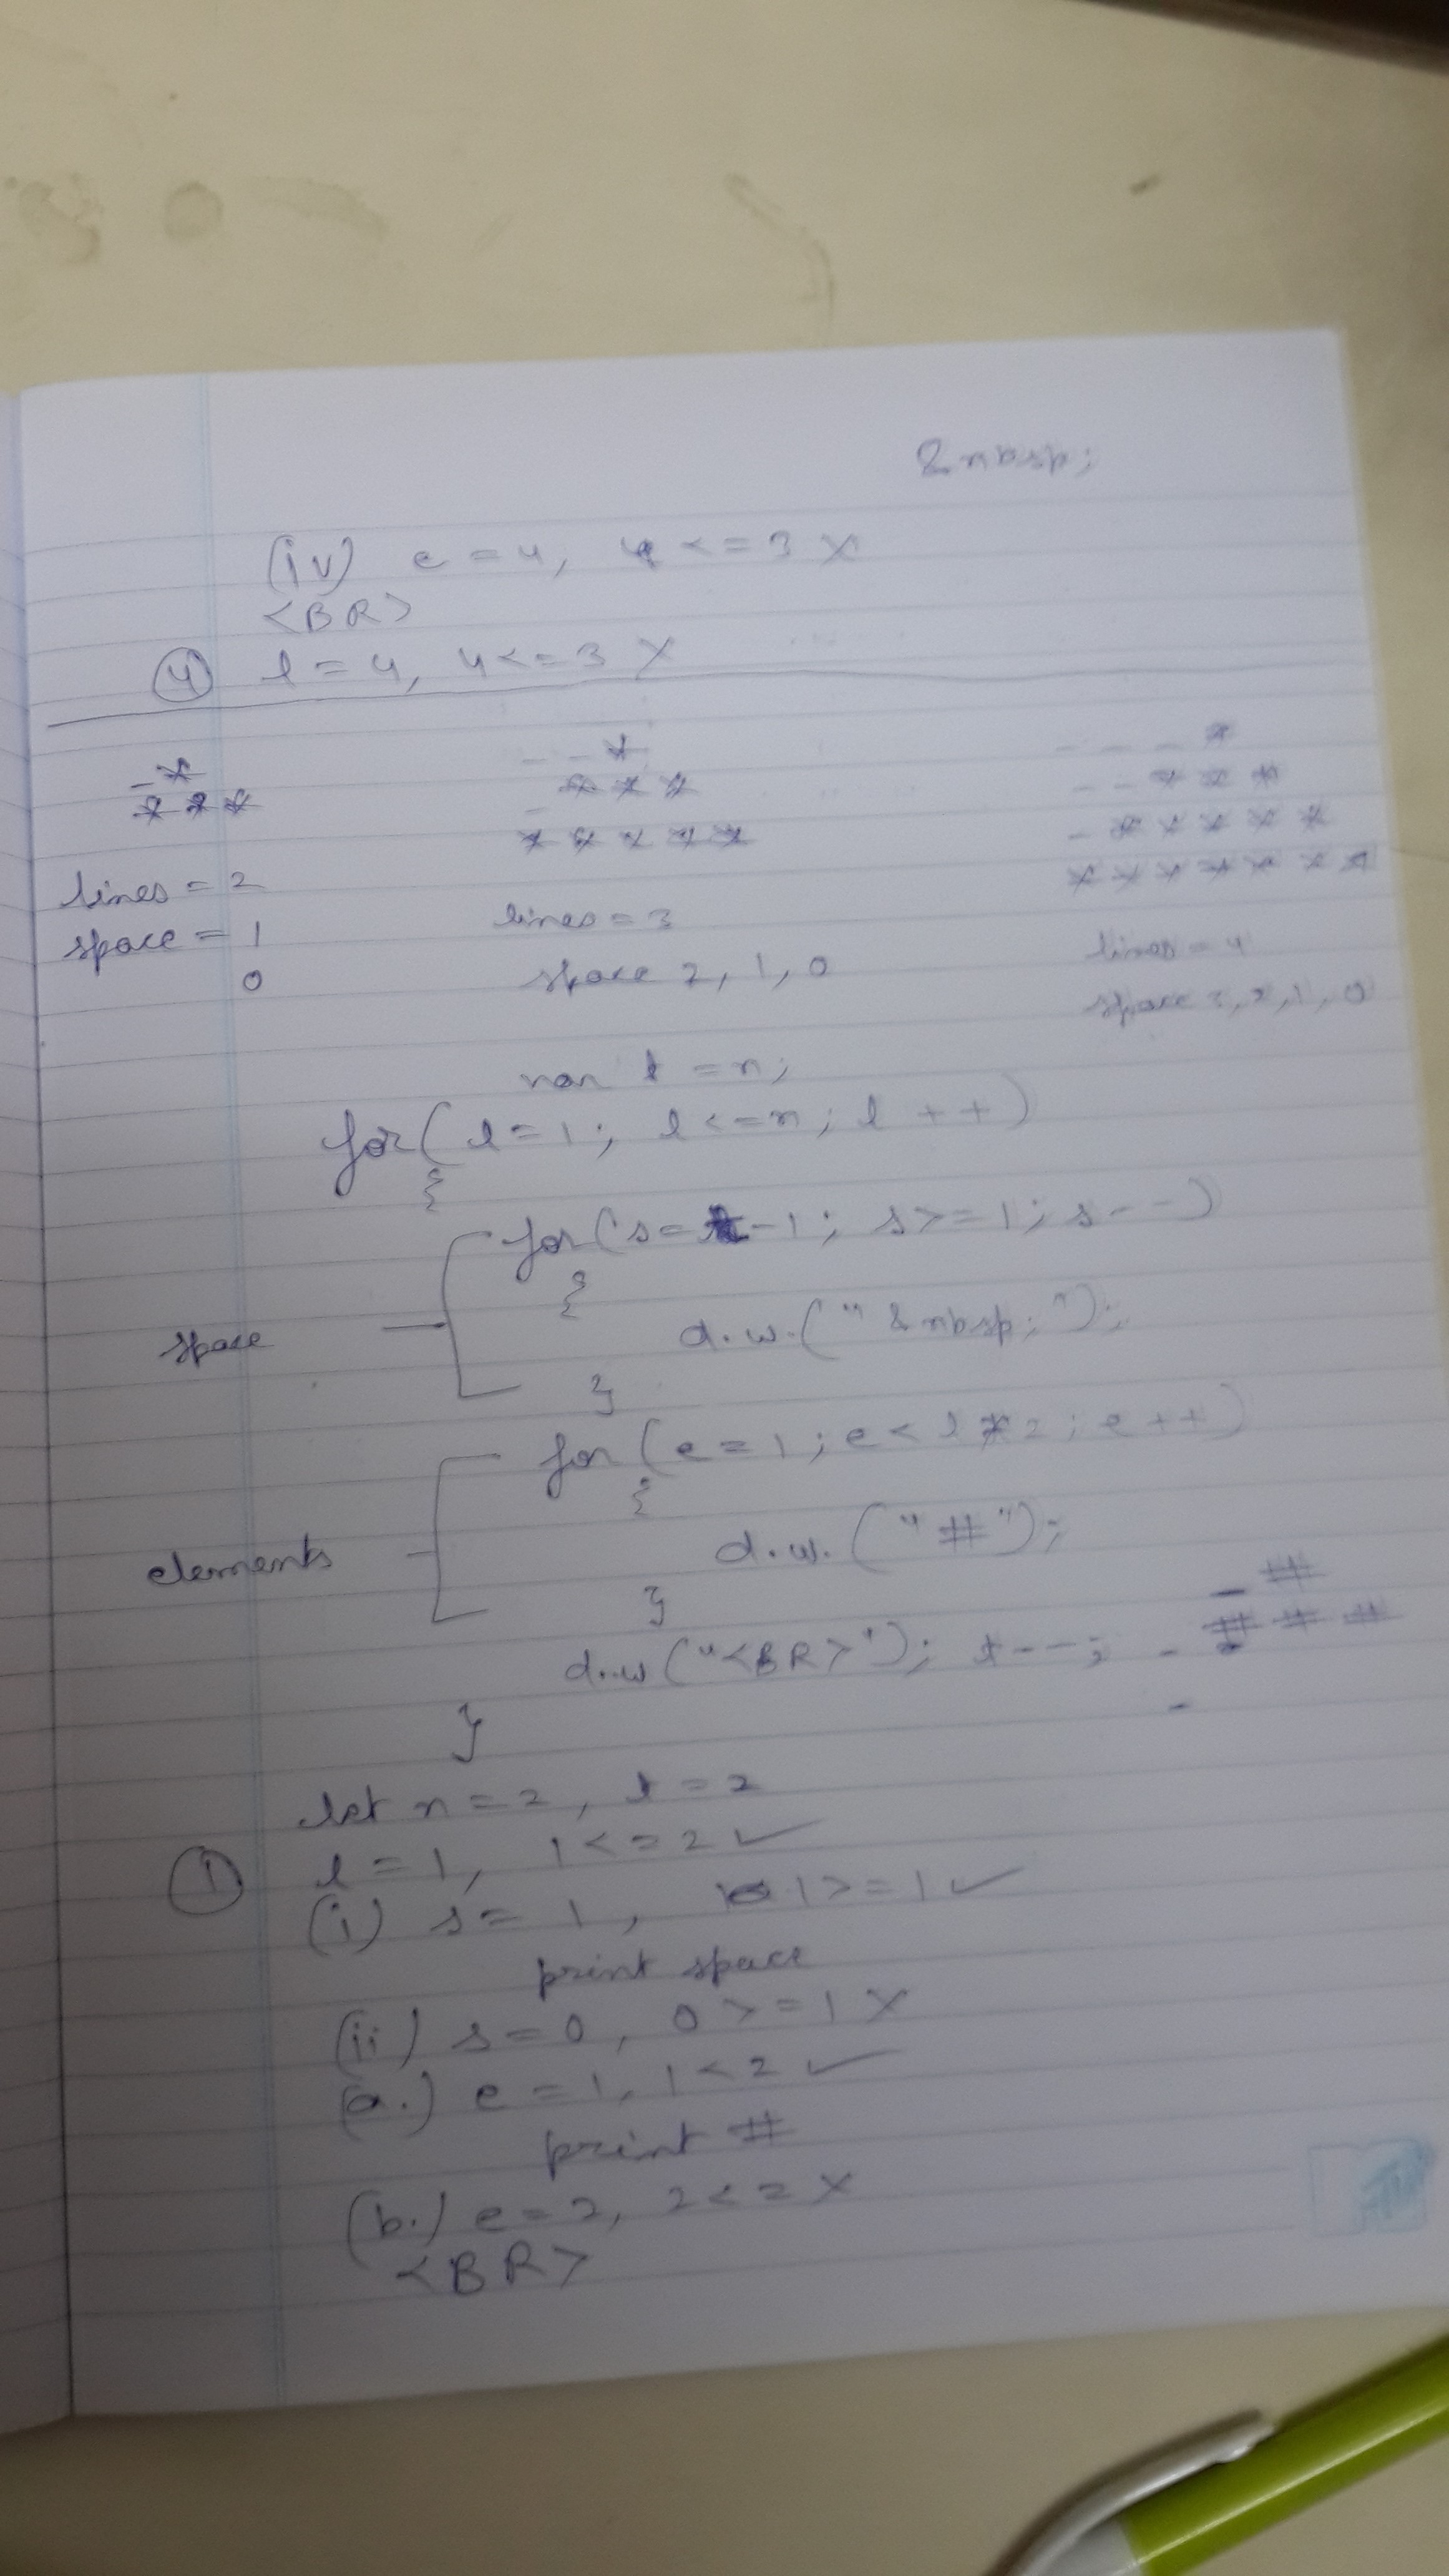 &nbsp;
(iv) e = 4, 4 <= 3 X
<BR>
(4) l = 4, 4 <= 3 X
_ *
* * *
lines = 2
space = 1
0
_ _ *
_ * * *
* * * * *
lines = 3
space 2, 1, 0
_ _ _ *
_ _ * * *
_ * * * * *
* * * * * * *
lines = 4
space 3, 2, 1, 0
var t = n;
for( l = 1; l <= n; l ++)
{
for(s = t - 1; s >= 1; s - -)
{
space
d.w.("&nbsp;");
}
for(e = 1; e < l * 2; e ++)
{
elements
d.w.("#");
}
_ #
# # #
d.w("<BR>"); t--;
}
let n = 2, t = 2
(1) l = 1, 1 <= 2 ✓
(i) s = 1, 1 >= 1 ✓
print space
(ii) s = 0, 0 >= 1 X
(a.) e = 1, 1 < 2 ✓
print #
(b.) e = 2, 2 < 2 X
<BR>